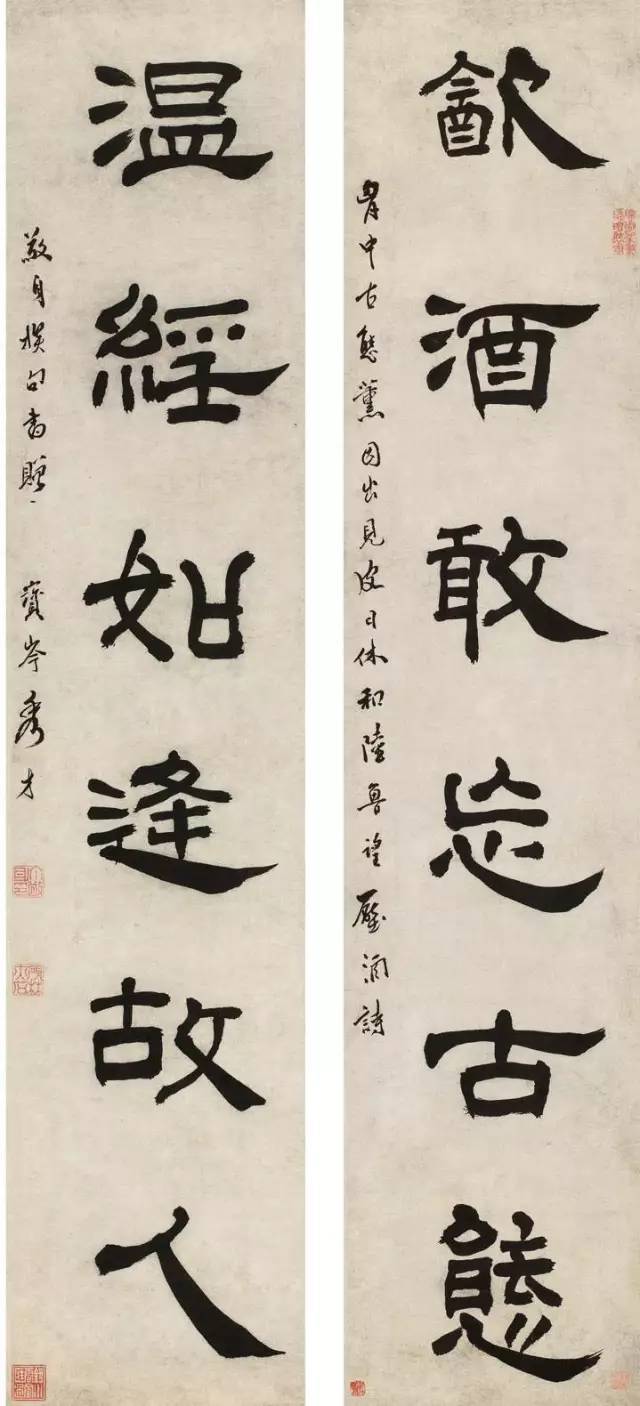 㱃酒敢忘古態
中古態薰因出見皮日休和陸魯望壓酒詩
温經如逢故人
敬身撰句書贈
寶岑秀才